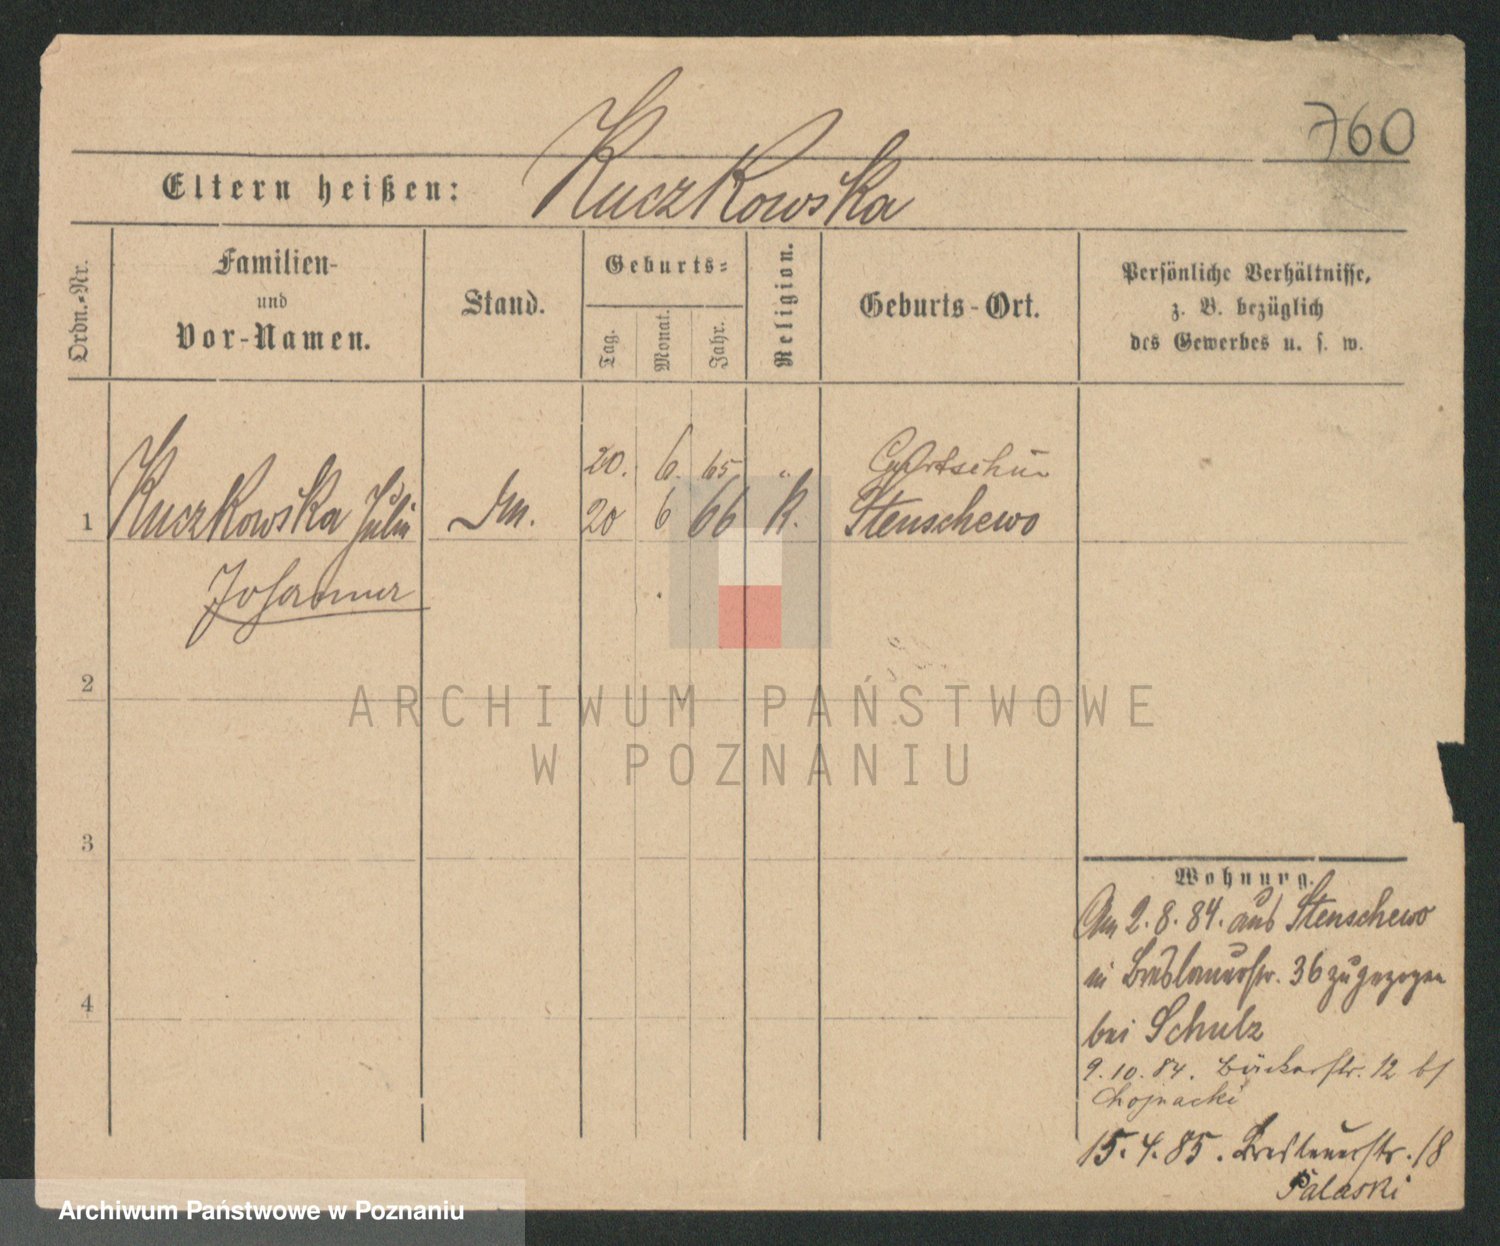 760
Eltern heißen: Kuczkowska
Ordn.-Nr.
Familien-
und
Vor-Namen.
Stand.
Geburts-
Tag.
Monat.
Jahr.
Religion.
Geburts-Ort.
Persönliche Verhältnisse,
z. B. bezüglich
des Gewerbes u. s. w.
20. 6. 65 "
1 Kuczkowska Julie 20 6 66 K. Stenschewo
Johanna
2
3
4
Wohnung.
Am 2.8.84. aus Stenschewo
in Breslauerstr. 36 zugezogen
bei Schulz
9.10.84. Bäckerstr. 12 b/
Chojnacki
15.4.85. Breslauerstr. 18
Palaski
ARCHIWUM PAŃSTWOWE
W POZNANIU
Archiwum Państwowe w Poznaniu